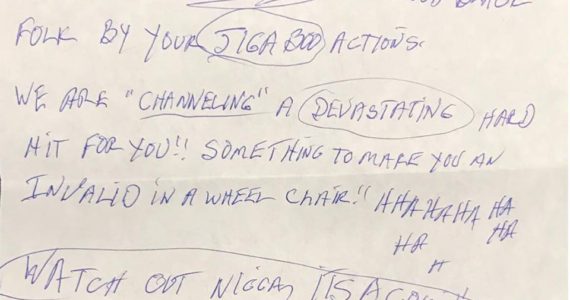 FOLK BY YOUR JIGABOO ACTIONS.
WE ARE "CHANNELING" A DEVASTATING HARD
HIT FOR YOU!! SOMETHING TO MAKE YOU AN
INVALID IN A WHEEL CHAIR!! HHAHAHAHA HA
HA HA
H
WATCH OUT NIGGA, ITS